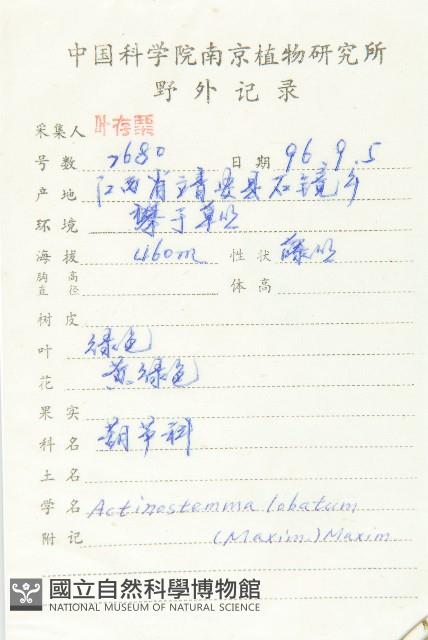 中国科学院南京植物研究所
野外记录
采集人 叶存粟
号数 7680 日期 96.9.5
产地 江西省靖安县石镜乡
环境 攀于草丛
海拔 460m 性状 藤状
胸高直径 体高
树皮
叶 绿色
花 黄绿色
果实
科名 葫芦科
土名
学名 Actinostemma lobatum
附记 (Maxim.) Maxim
國立自然科學博物館
NATIONAL MUSEUM OF NATURAL SCIENCE